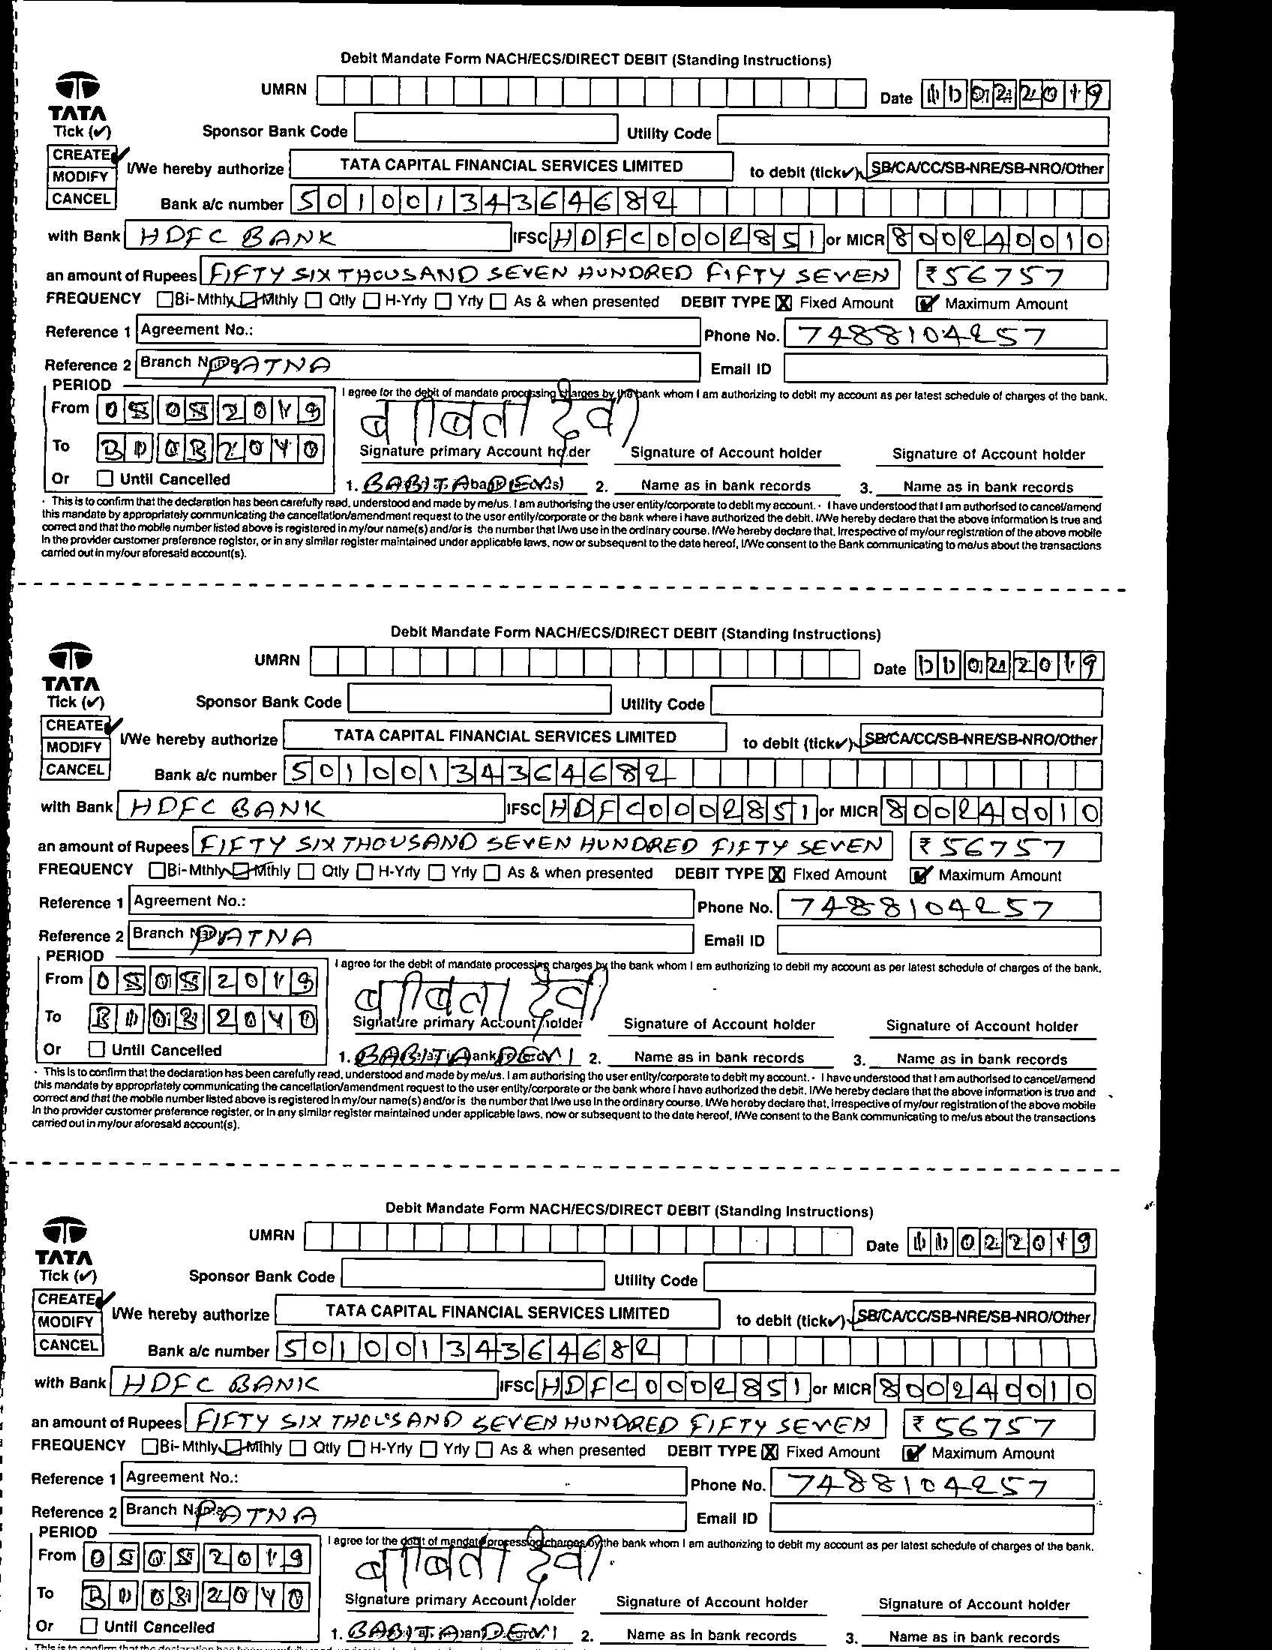 Debit Mandate Form NACH/ECS/DIRECT DEBIT (Standing Instructions)
UMRN Date 2019
TATA
Tick (✓) Sponsor Bank Code Utility Code
CREATE ✓ I/We hereby authorize TATA CAPITAL FINANCIAL SERVICES LIMITED to debit (tick✓) SB/CA/CC/SB-NRE/SB-NRO/Other
MODIFY
CANCEL Bank a/c number 50100134364682
with Bank HDFC BANK IFSC HDFC0002851 or MICR 800240010
an amount of Rupees FIFTY SIX THOUSAND SEVEN HUNDRED FIFTY SEVEN ₹ 56757
FREQUENCY Bi-Mthly Mthly Qtly H-Yrly Yrly As & when presented DEBIT TYPE X Fixed Amount ✓ Maximum Amount
Reference 1 Agreement No.: Phone No. 7488104257
Reference 2 Branch PATNA Email ID
PERIOD I agree for the debit of mandate processing charges by the bank whom I am authorizing to debit my account as per latest schedule of charges of the bank.
From 05052019 बबिता देवी
To Signature primary Account holder Signature of Account holder Signature of Account holder
Or Until Cancelled 1. BABITA DEVI 2. Name as in bank records 3. Name as in bank records
· This is to confirm that the declaration has been carefully read, understood and made by me/us. I am authorising the user entity/corporate to debit my account. · I have understood that I am authorised to cancel/amend
this mandate by appropriately communicating the cancellation/amendment request to the user entity/corporate or the bank where i have authorized the debit. I/We hereby declare that the above information is true and
correct and that the mobile number listed above is registered in my/our name(s) and/or is the number that I/we use in the ordinary course. I/We hereby declare that, irrespective of my/our registration of the above mobile
in the provider customer preference register, or in any similar register maintained under applicable laws, now or subsequent to the date hereof, I/We consent to the Bank communicating to me/us about the transactions
carried out in my/our aforesaid account(s).
Debit Mandate Form NACH/ECS/DIRECT DEBIT (Standing Instructions)
UMRN Date 2019
TATA
Tick (✓) Sponsor Bank Code Utility Code
CREATE ✓ I/We hereby authorize TATA CAPITAL FINANCIAL SERVICES LIMITED to debit (tick✓) SB/CA/CC/SB-NRE/SB-NRO/Other
MODIFY
CANCEL Bank a/c number 50100134364682
with Bank HDFC BANK IFSC HDFC0002851 or MICR 800240010
an amount of Rupees FIFTY SIX THOUSAND SEVEN HUNDRED FIFTY SEVEN ₹ 56757
FREQUENCY Bi-Mthly Mthly Qtly H-Yrly Yrly As & when presented DEBIT TYPE X Fixed Amount ✓ Maximum Amount
Reference 1 Agreement No.: Phone No. 7488104257
Reference 2 Branch PATNA Email ID
PERIOD I agree for the debit of mandate processing charges by the bank whom I am authorizing to debit my account as per latest schedule of charges of the bank.
From 05052019 बबिता देवी
To Signature primary Account holder Signature of Account holder Signature of Account holder
Or Until Cancelled 1. BABITA DEVI 2. Name as in bank records 3. Name as in bank records
· This is to confirm that the declaration has been carefully read, understood and made by me/us. I am authorising the user entity/corporate to debit my account. · I have understood that I am authorised to cancel/amend
this mandate by appropriately communicating the cancellation/amendment request to the user entity/corporate or the bank where i have authorized the debit. I/We hereby declare that the above information is true and
correct and that the mobile number listed above is registered in my/our name(s) and/or is the number that I/we use in the ordinary course. I/We hereby declare that, irrespective of my/our registration of the above mobile
in the provider customer preference register, or in any similar register maintained under applicable laws, now or subsequent to the date hereof, I/We consent to the Bank communicating to me/us about the transactions
carried out in my/our aforesaid account(s).
Debit Mandate Form NACH/ECS/DIRECT DEBIT (Standing Instructions)
UMRN Date 022019
TATA
Tick (✓) Sponsor Bank Code Utility Code
CREATE ✓ I/We hereby authorize TATA CAPITAL FINANCIAL SERVICES LIMITED to debit (tick✓) SB/CA/CC/SB-NRE/SB-NRO/Other
MODIFY
CANCEL Bank a/c number 50100134364682
with Bank HDFC BANK IFSC HDFC0002851 or MICR 800240010
an amount of Rupees FIFTY SIX THOUSAND SEVEN HUNDRED FIFTY SEVEN ₹ 56757
FREQUENCY Bi-Mthly Mthly Qtly H-Yrly Yrly As & when presented DEBIT TYPE X Fixed Amount ✓ Maximum Amount
Reference 1 Agreement No.: Phone No. 7488104257
Reference 2 Branch Name PATNA Email ID
PERIOD I agree for the debit of mandate processing charges by the bank whom I am authorizing to debit my account as per latest schedule of charges of the bank.
From 05052019 बबिता देवी
To Signature primary Account holder Signature of Account holder Signature of Account holder
Or Until Cancelled 1. BABITA DEVI 2. Name as in bank records 3. Name as in bank records